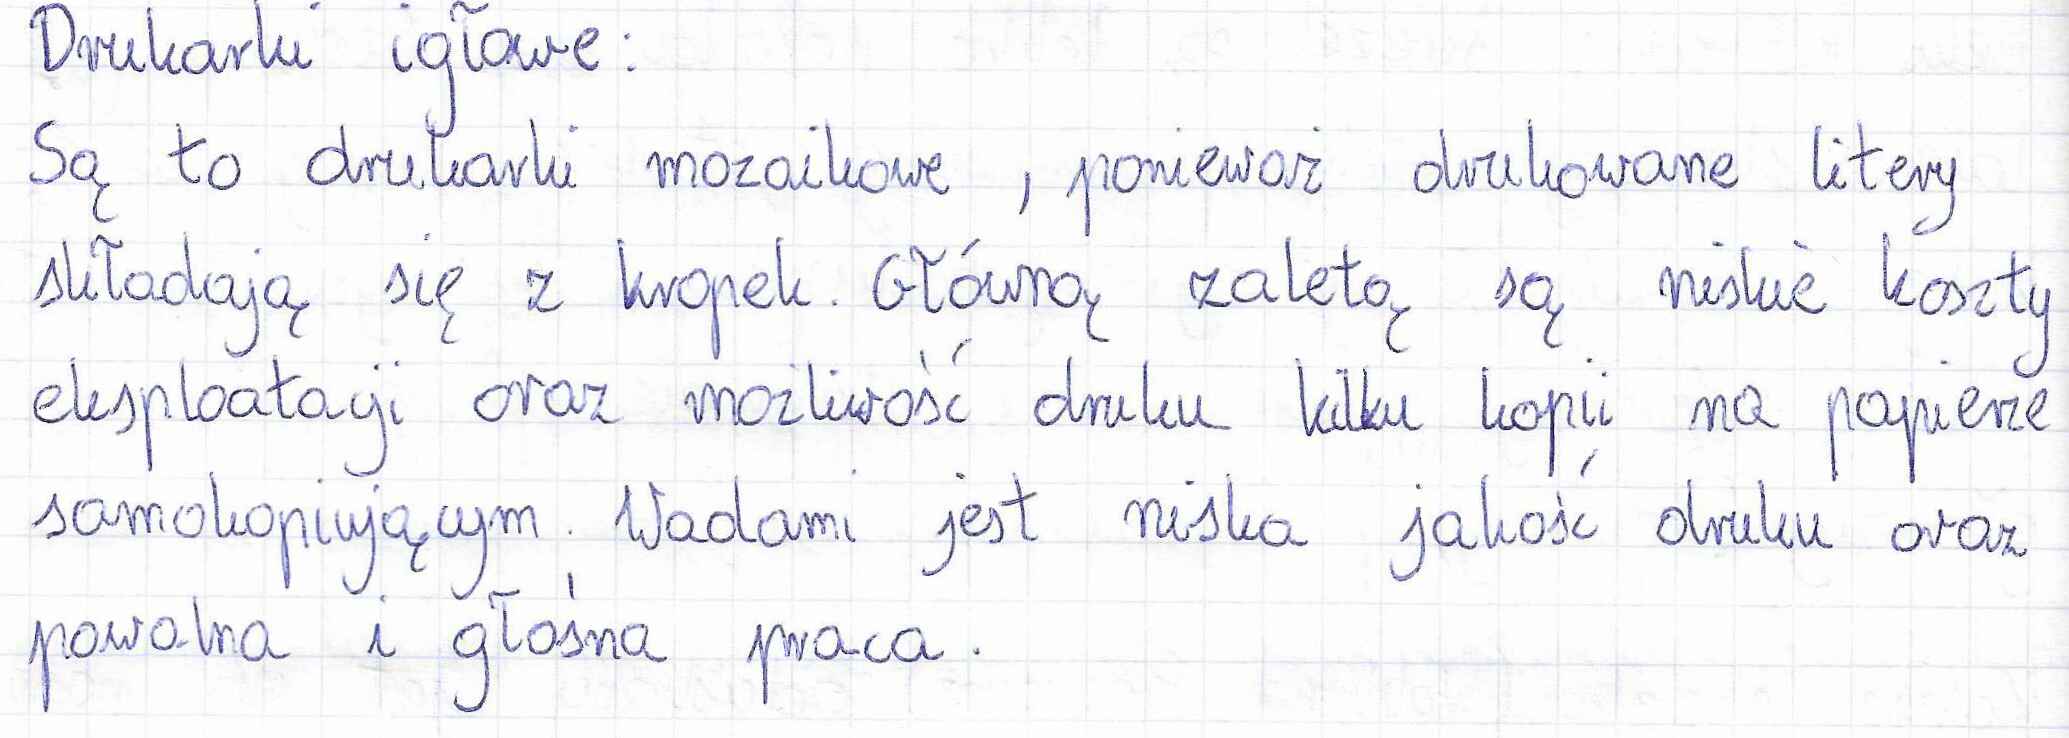 Drukarki igłowe:
Są to drukarki mozaikowe, ponieważ drukowane litery
składają się z kropek. Główną zaletą są niskie koszty
eksploatacji oraz możliwość druku kilku kopii na papierze
samokopiującym. Wadami jest niska jakość druku oraz
powolna i głośna praca.